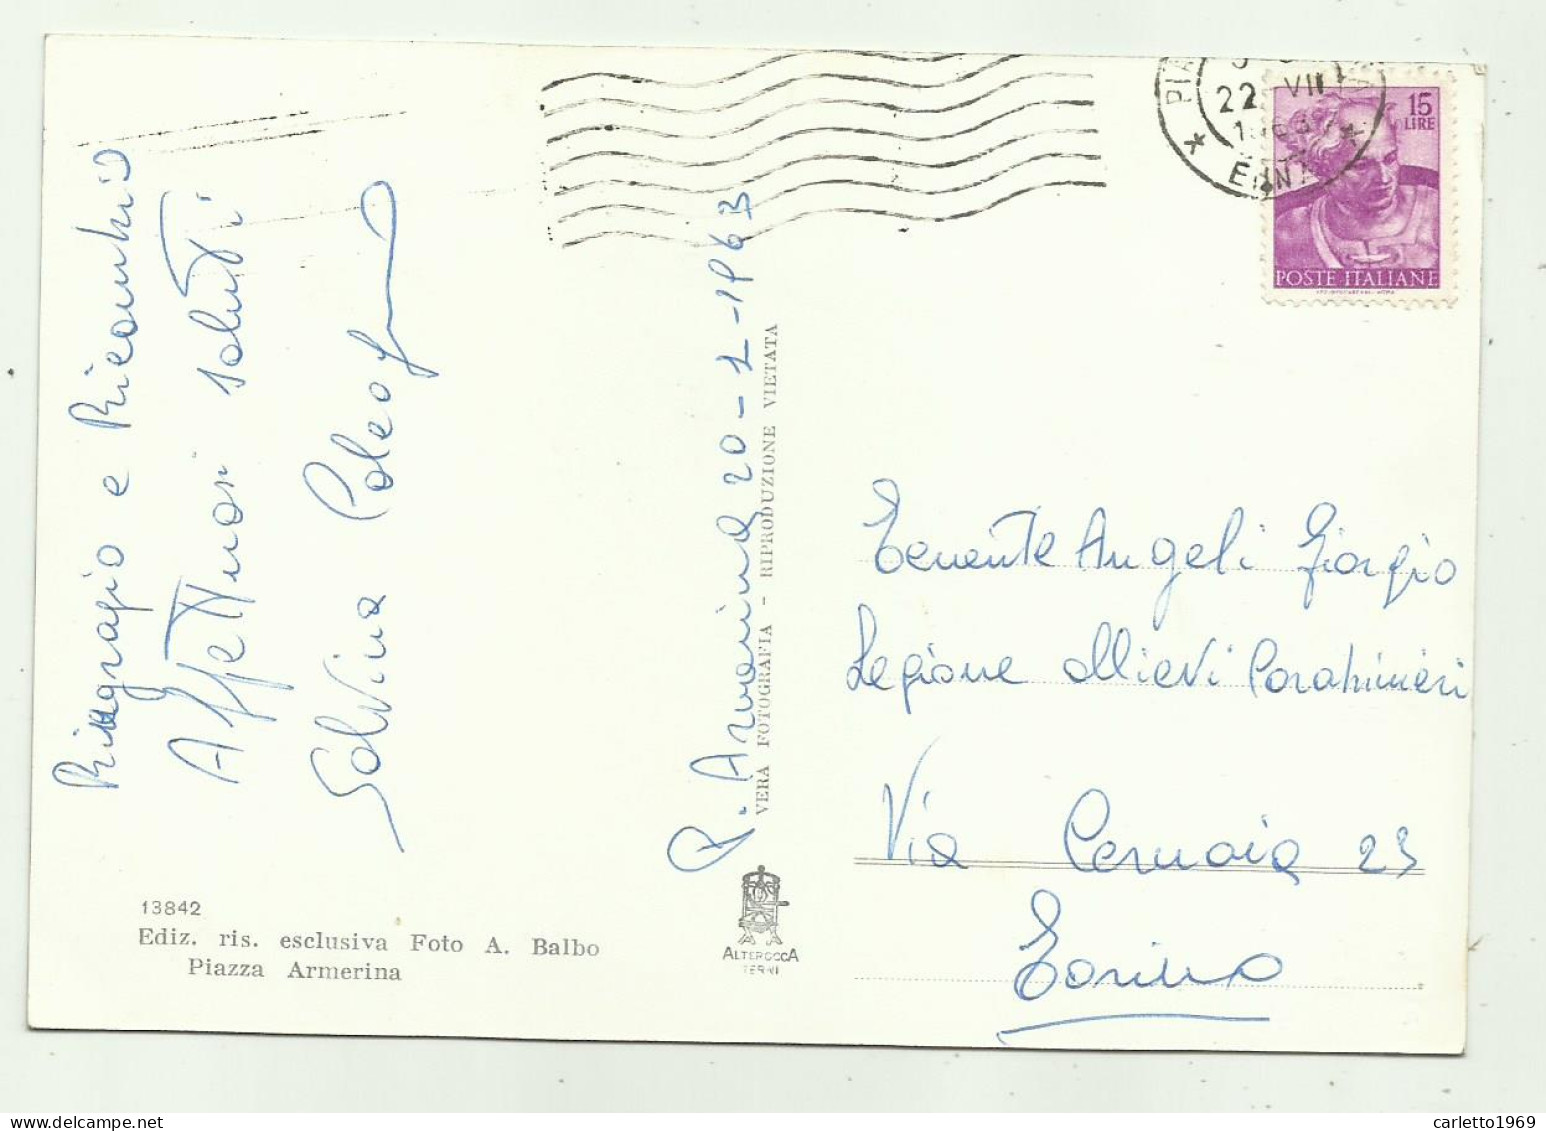 Ringragio e Ricambio
Affettuosi saluti
Salvina
P. Armerina 20-7-1963
VERA FOTOGRAFIA - RIPRODUZIONE VIETATA
13842
Ediz. ris. esclusiva Foto A. Balbo
Piazza Armerina
ALTEROCCA
TERNI
22 VII
ENNA
15
LIRE
POSTE ITALIANE
Tenente Angeli Giorgio
Legione allievi Carabinieri
Via Cernaia 23
Torino
carletto1969